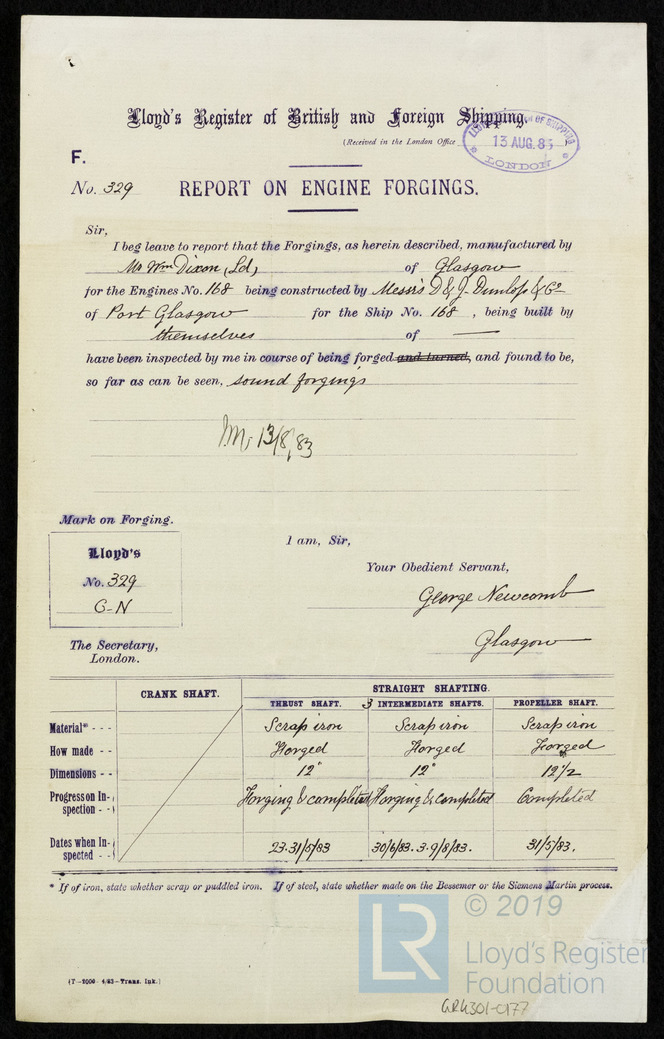 Lloyd's Register of British and Foreign Shipping.
(Received in the London Office
13 AUG. 83
LONDON
F.
No. 329 REPORT ON ENGINE FORGINGS.
Sir,
I beg leave to report that the Forgings, as herein described, manufactured by
Mr Wm Dixon, (Ld) of Glasgow
for the Engines No. 168 being constructed by Messrs D & J. Dunlop & Co
of Port Glasgow for the Ship No. 168, being built by
themselves of —
have been inspected by me in course of being forged and turned, and found to be,
so far as can be seen, sound forgings
13/8/83
Mark on Forging.
Lloyd's
No. 329
G-N
I am, Sir,
Your Obedient Servant,
George Newcomb
Glasgow
The Secretary,
London.
CRANK SHAFT. STRAIGHT SHAFTING.
THRUST SHAFT. 3 INTERMEDIATE SHAFTS. PROPELLER SHAFT.
Material* - - - Scrap iron Scrap iron Scrap iron
How made - - Forged Forged Forged
Dimensions - - 12" 12" 12 1/2
Progress on In- Forging & completed Forging & completed Completed
spection - -
Dates when In- 23.31/5/83 30/6/83. 3.9/8/83. 31/5/83.
spected - -
* If of iron, state whether scrap or puddled iron. If of steel, state whether made on the Bessemer or the Siemens Martin process.
LR
© 2019
Lloyd's Register
Foundation
(T—2000—4/83—Trans. Ink.)
GRK301-0177